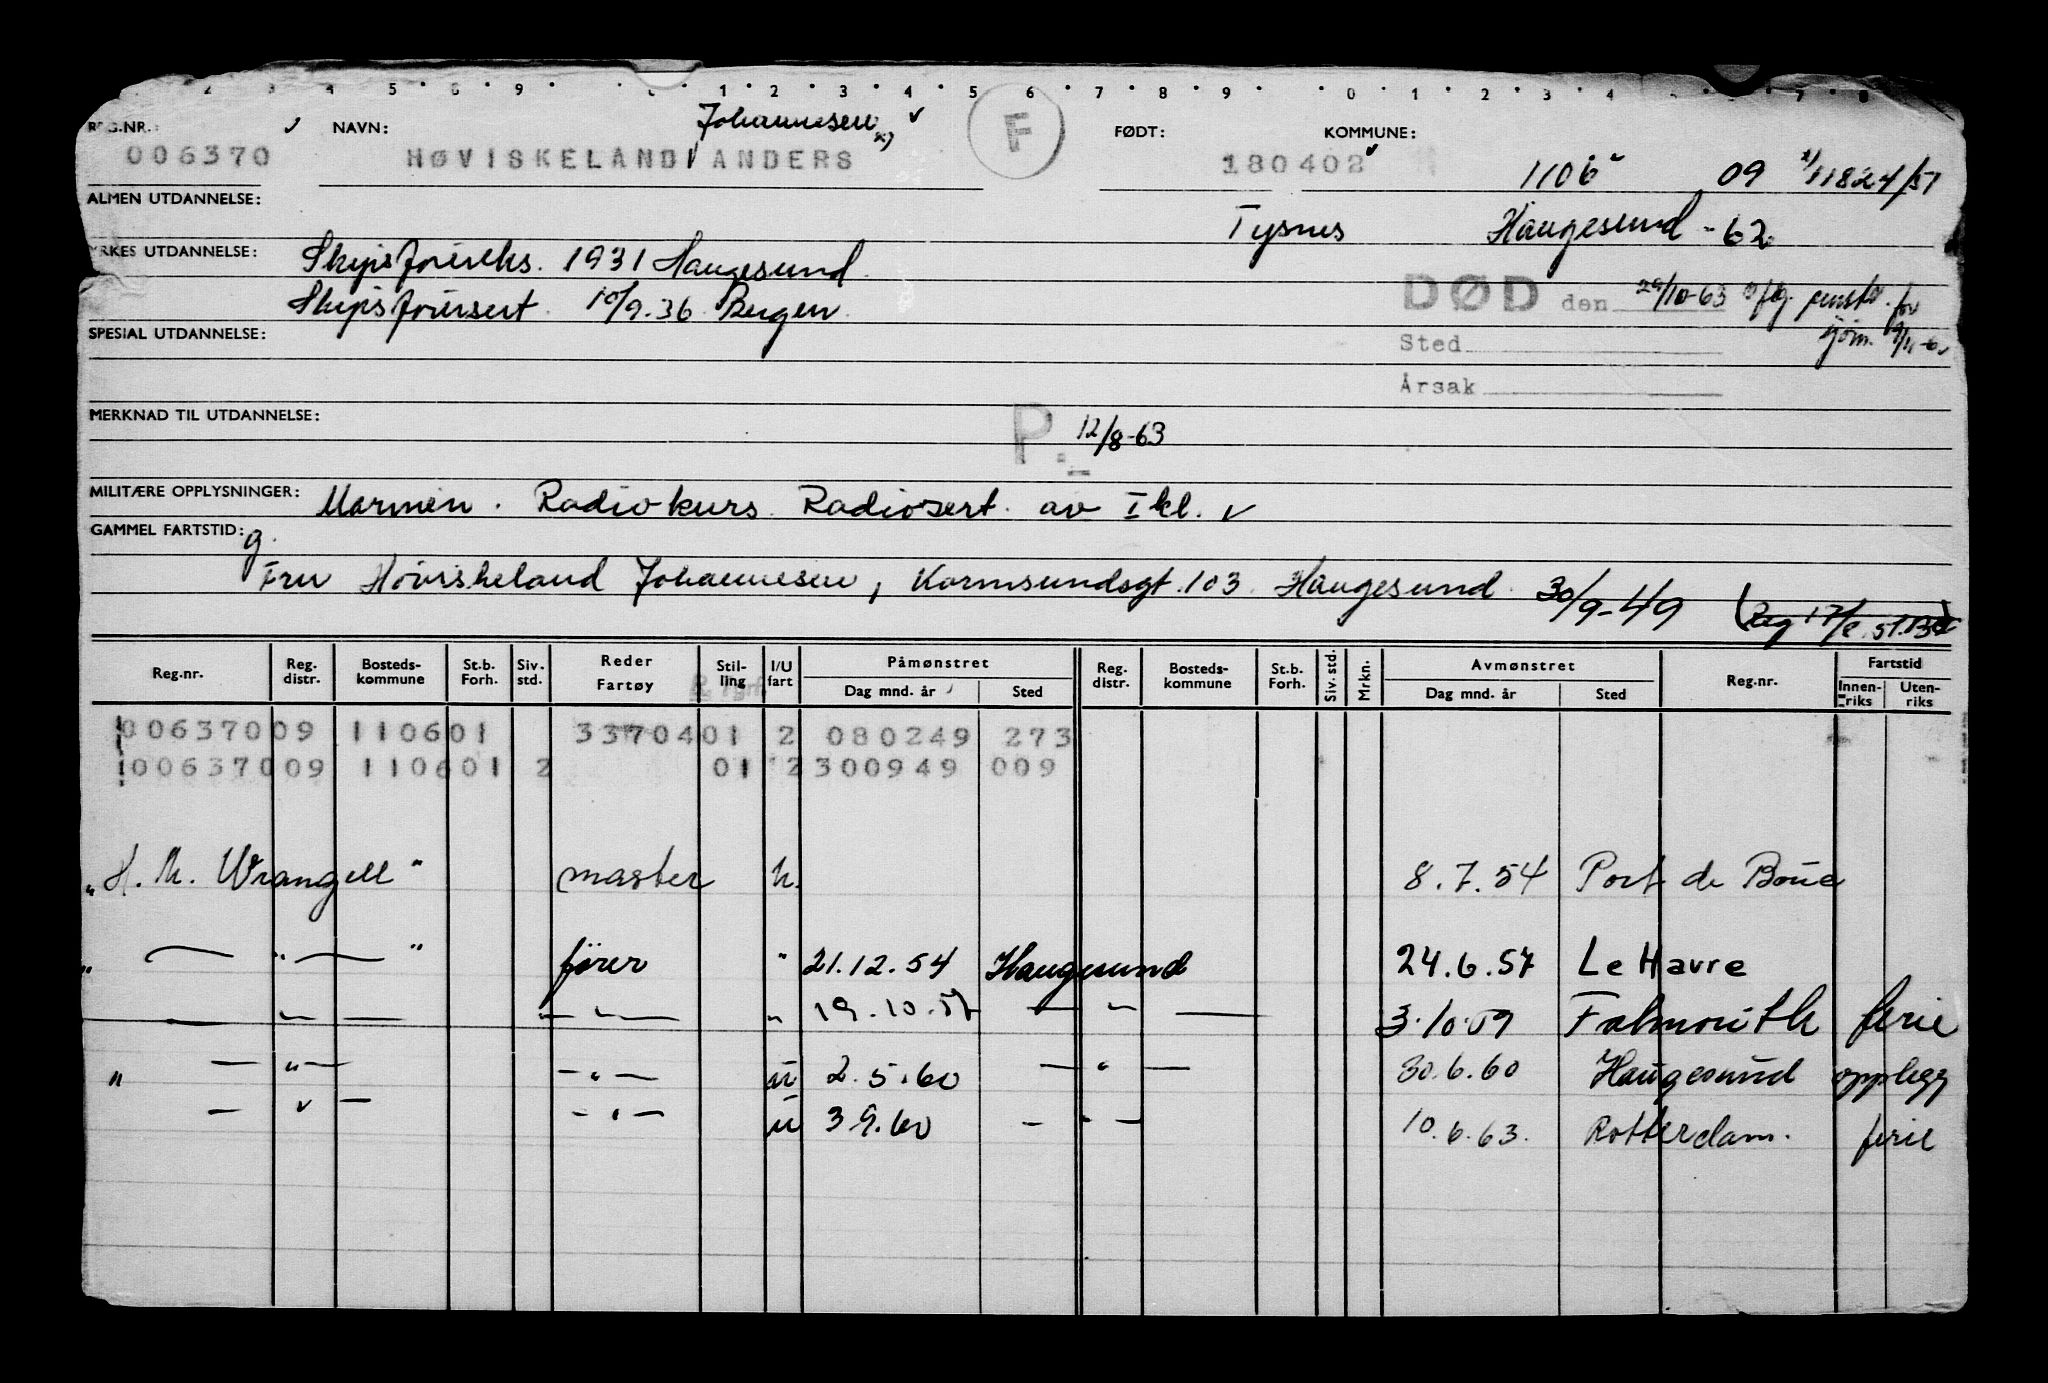 REG.NR.: NAVN: Johannesen x) F FØDT: KOMMUNE:
006370 HØVISKELAND ANDERS 180402 1106 09 11824/51
ALMEN UTDANNELSE: Tysnes Haugesund -62
YRKES UTDANNELSE: Skipsføreeks. 1931 Haugesund
Skipsførersert. 10/9.36 Bergen
DØD den 29/10-63 iflg. pensj. for
sjøm.
SPESIAL UTDANNELSE:
Sted
Årsak
MERKNAD TIL UTDANNELSE:
P. 12/8-63
MILITÆRE OPPLYSNINGER: Marinen. Radiokurs. Radiosert. av I kl.
GAMMEL FARTSTID:
g. Fru Høviskeland Johannesen, Karmsundsgt. 103. Haugesund 30/9-49
Reg.nr. Reg. distr. Bosteds-kommune St.b. Forh. Siv. std. Reder Fartøy Stil-ling I/U fart Påmønstret Dag mnd. år Sted Reg. distr. Bosteds-kommune St.b. Forh. Siv. std. Mrkn. Avmønstret Dag mnd. år Sted Reg.nr. Fartstid Innen-riks Uten-riks
00637009 110601 3370401 2 080249 273
00637009 110601 2 01 2 300949 009
"H. M. Wrangell" master u. 8.7.54 Port de Boue
" — " — " fører " 21.12.54 Haugesund 24.6.57 Le Havre
— " — — " — " 19.10.57 — " — 3.10.59 Falmouth ferie
" — " — — " — u 2.5.60 — " — 30.6.60 Haugesund opplegg
— " — — " — u 3.9.60 — " — 10.6.63. Rotterdam. ferie